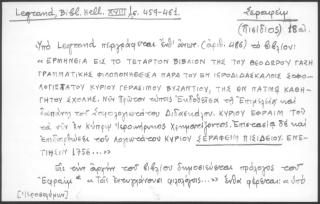 Legrand, Bibl. Hell. XVIII, Ι, σ. 459-461.
Σεραφείμ
(Πισίδιος) 18α).
Υπό Legrand περιγράφεται ὑπ' ἀριθ. (ἀριθ. 486) τό βιβλίον:
« ΕΡΜΗΝΕΙΑ ΕΙΣ ΤΟ ΤΕΤΑΡΤΟΝ ΒΙΒΛΙΟΝ ΤΗΣ ΤΟΥ ΘΕΟΔΩΡΟΥ ΓΑΖΗ
ΓΡΑΜΜΑΤΙΚΗΣ ΦΙΛΟΠΟΝΗΘΕΙΣΑ ΠΑΡΑ ΤΟΥ ΕΝ ΙΕΡΟΔΙΔΑΣΚΑΛΟΙΣ ΣΟΦΟ-
ΛΟΓΙΩΤΑΤΟΥ ΚΥΡΙΟΥ ΓΕΡΑΣΙΜΟΥ ΒΥΖΑΝΤΙΟΥ, ΤΗΣ ΕΝ ΠΑΤΜΩ ΚΑΘΗ-
ΓΗΤΟΥ ΣΧΟΛΗΣ. Νῦν Πρῶτον τύποις Ἐκδοθεῖσα τῇ Ἐπιμελείᾳ καί
δαπάνῃ τοῦ Σοφολογιωτάτου Διδασκάλου ΚΥΡΙΟΥ ΕΦΡΑΙΜ ΤΟΥ
τά νῦν ἐν Κύπρῳ Ἱεροκήρυκος Χρηματίζοντος. Ἐπιστασίᾳ δέ καί
Ἐπιδιορθώσει τοῦ Λογιωτάτου ΚΥΡΙΟΥ ΣΕΡΑΦΕΙΜ ΠΙΣΙΔΕΙΟΥ. ΕΝΕ-
ΤΙΗΣΙΝ 1756...»
Εἰς τήν ἀρχήν τοῦ βιβλίου δημοσιεύεται πρόλογος τοῦ
Ἐφραίμ « Τοῖς ἐντευξομένοις φιλολόγοις...» ἔνθα φέρεται: « ὑπό
[Ἱεροσολύμων]